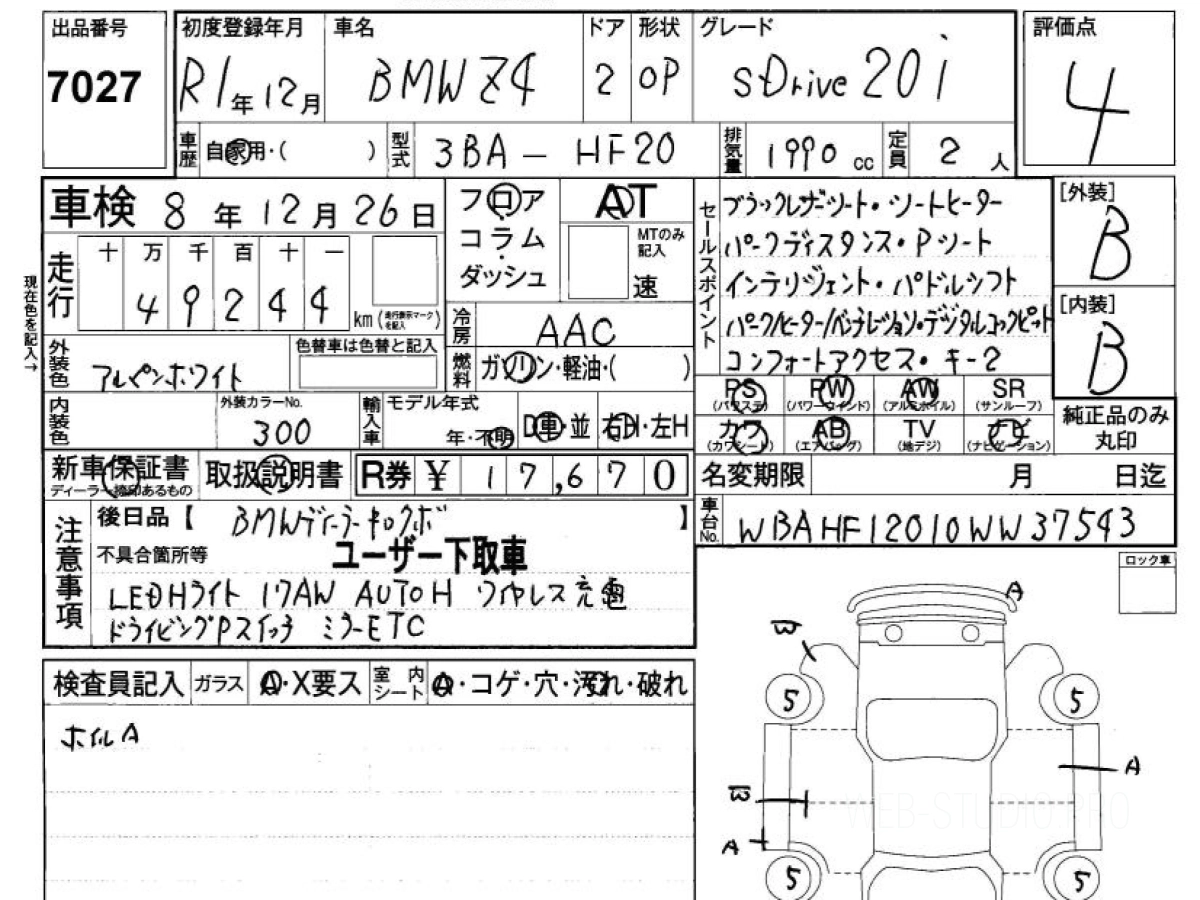 出品番号
7027
初度登録年月
R1年12月
車名
BMW Z4
ドア
2
形状
OP
グレード
sDrive 20i
評価点
4
車歴
自家用・( )
型式
3BA - HF20
排気量
1990 cc
定員
2 人
車検 8年12月26日
フロア
コラム
ダッシュ
AT
MTのみ
記入
速
セールスポイント
ブラックレザーシート・シートヒーター
パークディスタンス・Pシート
インテリジェント・パドルシフト
パーク/ヒーター/ベンチレーション・デジタルコックピット
コンフォートアクセス・キー2
[外装]
B
[内装]
B
現在色を記入→
走行
十 万 千 百 十 一
4 9 2 4 4
km(走行表示マークを記入)
冷房
AAC
燃料
ガソリン・軽油・( )
外装色
アルペンホワイト
色替車は色替と記入
内装色
外装カラーNo.
300
輸入車
モデル年式
年・不明
D車・並
右H・左H
PS
(パワステ)
PW
(パワーウインド)
AW
(アルミホイル)
SR
(サンルーフ)
カワ
(カワシート)
AB
(エアバッグ)
TV
(地デジ)
ナビ
(ナビゲーション)
純正品のみ
丸印
新車保証書
ディーラー捺印あるもの
取扱説明書
R券 ¥ 17,670
名変期限 月 日迄
車台No.
WBAHF12010WW37543
注意事項
後日品【 BMWディーラーキロクボ 】
不具合箇所等
ユーザー下取車
LEDHライト 17AW AUTOH ワイヤレス充電
ドライビングPスイッチ ミラーETC
ロック車
検査員記入
ガラス
A・X要ス
室内シート
A・コゲ・穴・汚れ・破れ
ホイルA
A
W
5
5
A
W
A
5
5
WEB-STUDIO.PRO